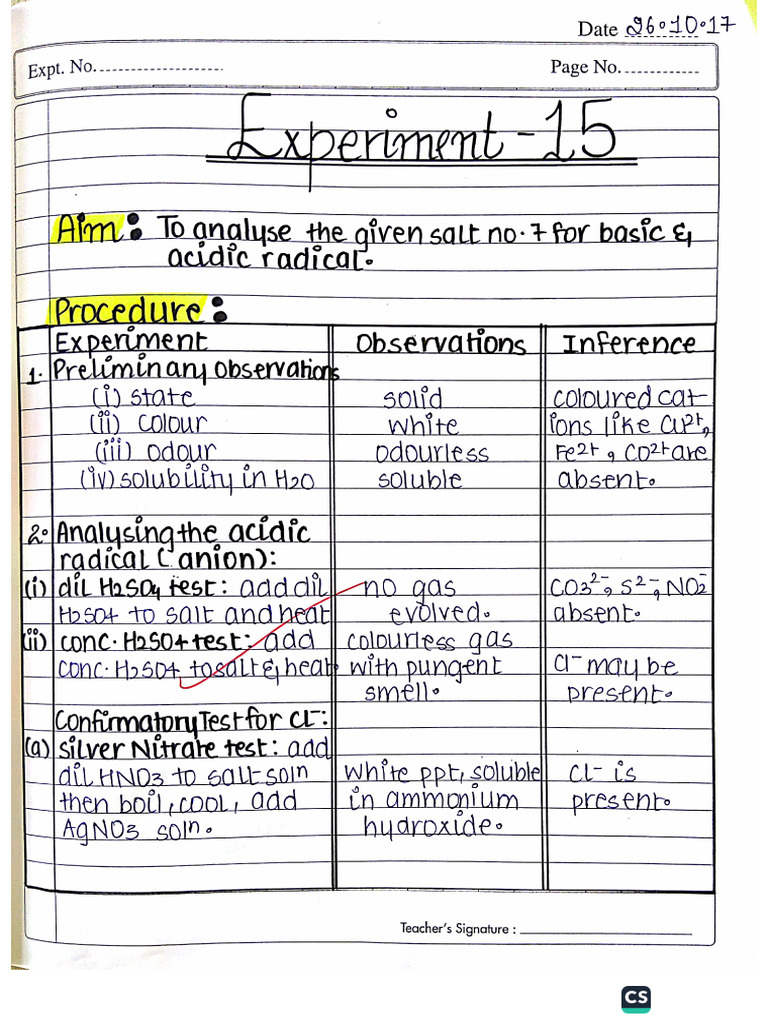 Date 26.10.17
Expt. No.
Page No.
Experiment - 15
Aim: To analyse the given salt no. 7 for basic &
acidic radical.
Procedure:
Experiment Observations Inference
1. Preliminary observations
(i) state solid coloured cat-
(ii) colour white ions like Cu2+,
(iii) odour odourless Fe2+, CO2+ are
(iv) solubility in H2O soluble absent.
2. Analysing the acidic
radical (anion):
(i) dil H2SO4 test: add dil no gas CO3 2-, S2-, NO2-
H2SO4 to salt and heat evolved. absent.
(ii) conc. H2SO4 test: add colourless gas
conc. H2SO4 to salt & heat with pungent Cl- may be
smell. present.
Confirmatory Test for Cl-:
(a) Silver Nitrate test: add
dil HNO3 to salt soln white ppt, soluble Cl- is
then boil, cool, add in ammonium present.
AgNO3 soln. hydroxide.
Teacher's Signature :
CS